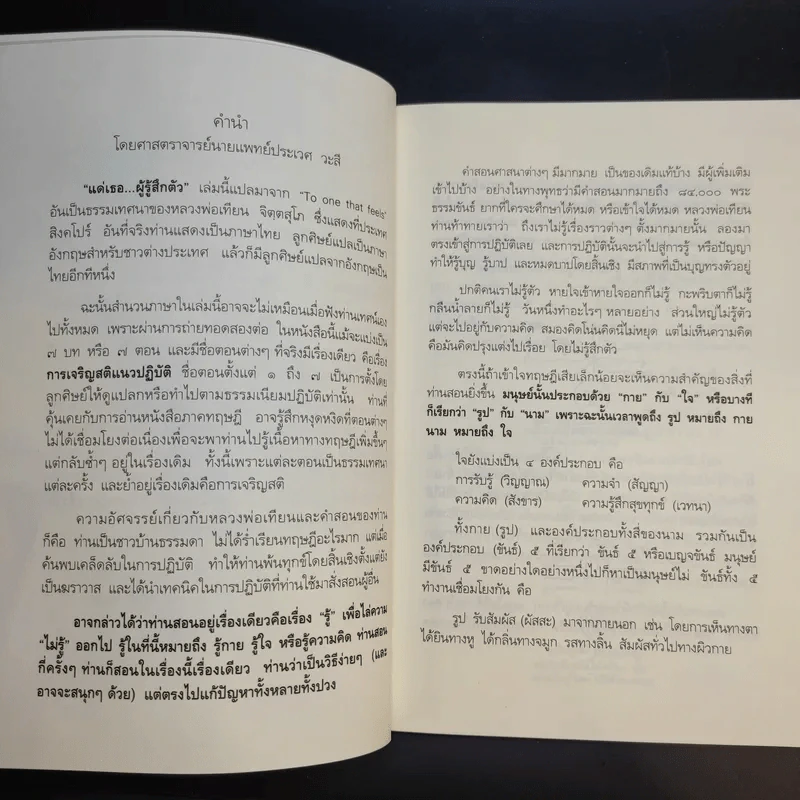 คำนำ
โดยศาสตราจารย์นายแพทย์ประเวศ วะสี
"แด่เธอ...ผู้รู้สึกตัว" เล่มนี้แปลมาจาก "To one that feels"
อันเป็นธรรมเทศนาของหลวงพ่อเทียน จิตฺตสุโภ ซึ่งแสดงที่ประเทศ
สิงคโปร์ อันที่จริงท่านแสดงเป็นภาษาไทย ลูกศิษย์แปลเป็นภาษา
อังกฤษสำหรับชาวต่างประเทศ แล้วก็มีลูกศิษย์แปลจากอังกฤษเป็น
ไทยอีกทีหนึ่ง
ฉะนั้นสำนวนภาษาในเล่มนี้อาจจะไม่เหมือนเมื่อฟังท่านเทศน์เอง
ไปทั้งหมด เพราะผ่านการถ่ายทอดสองต่อ ในหนังสือนี้แม้จะแบ่งเป็น
๗ บท หรือ ๗ ตอน และมีชื่อตอนต่างๆ ที่จริงมีเรื่องเดียว คือเรื่อง
การเจริญสติแนวปฏิบัติ ชื่อตอนตั้งแต่ ๑ ถึง ๗ เป็นการตั้งโดย
ลูกศิษย์ให้ดูแปลกหรือทำไปตามธรรมเนียมปฏิบัติเท่านั้น ท่านที่
คุ้นเคยกับการอ่านหนังสือภาคทฤษฎี อาจรู้สึกหงุดหงิดที่ตอนต่างๆ
ไม่ได้เชื่อมโยงต่อเนื่องเพื่อจะพาท่านไปรู้เนื้อหาทางทฤษฎีเพิ่มขึ้นๆ
แต่กลับซ้ำๆ อยู่ในเรื่องเดิม ทั้งนี้เพราะแต่ละตอนเป็นธรรมเทศนา
แต่ละครั้ง และย้ำอยู่เรื่องเดิมคือการเจริญสติ
ความอัศจรรย์เกี่ยวกับหลวงพ่อเทียนและคำสอนของท่าน
ก็คือ ท่านเป็นชาวบ้านธรรมดา ไม่ได้ร่ำเรียนทฤษฎีอะไรมาก แต่เมื่อ
ค้นพบเคล็ดลับในการปฏิบัติ ทำให้ท่านพ้นทุกข์โดยสิ้นเชิงตั้งแต่ยัง
เป็นฆราวาส และได้นำเทคนิคในการปฏิบัติที่ท่านใช้มาสั่งสอนผู้อื่น
อาจกล่าวได้ว่าท่านสอนอยู่เรื่องเดียวคือเรื่อง "รู้" เพื่อไล่ความ
"ไม่รู้" ออกไป รู้ในที่นี้หมายถึง รู้กาย รู้ใจ หรือรู้ความคิด ท่านสอน
กี่ครั้งๆ ท่านก็สอนในเรื่องนี้เรื่องเดียว ท่านว่าเป็นวิธีง่ายๆ (และ
อาจจะสนุกๆ ด้วย) แต่ตรงไปแก้ปัญหาทั้งหลายทั้งปวง
คำสอนศาสนาต่างๆ มีมากมาย เป็นของเดิมแท้บ้าง มีผู้เพิ่มเติม
เข้าไปบ้าง อย่างในทางพุทธว่ามีคำสอนมากมายถึง ๘๔,๐๐๐ พระ
ธรรมขันธ์ ยากที่ใครจะศึกษาได้หมด หรือเข้าใจได้หมด หลวงพ่อเทียน
ท่านท้าทายเราว่า ถึงเราไม่รู้เรื่องราวต่างๆ ตั้งมากมายนั้น ลองมา
ตรงเข้าสู่การปฏิบัติเลย และการปฏิบัตินั้นจะนำไปสู่การรู้ หรือปัญญา
ทำให้รู้บุญ รู้บาป และหมดบาปโดยสิ้นเชิง มีสภาพที่เป็นบุญทรงตัวอยู่
ปกติคนเราไม่รู้ตัว หายใจเข้าหายใจออกก็ไม่รู้ กะพริบตาก็ไม่รู้
กลืนน้ำลายก็ไม่รู้ วันหนึ่งทำอะไรๆ หลายอย่าง ส่วนใหญ่ไม่รู้ตัว
แต่จะไปอยู่กับความคิด สมองคิดโน่นคิดนี่ไม่หยุด แต่ไม่เห็นความคิด
คือมันคิดปรุงแต่งไปเรื่อย โดยไม่รู้สึกตัว
ตรงนี้ถ้าเข้าใจทฤษฎีเสียเล็กน้อยจะเห็นความสำคัญของสิ่งที่
ท่านสอนยิ่งขึ้น มนุษย์นั้นประกอบด้วย "กาย" กับ "ใจ" หรือบางที
ก็เรียกว่า "รูป" กับ "นาม" เพราะฉะนั้นเวลาพูดถึง รูป หมายถึง กาย
นาม หมายถึง ใจ
ใจยังแบ่งเป็น ๔ องค์ประกอบ คือ
การรับรู้ (วิญญาณ) ความจำ (สัญญา)
ความคิด (สังขาร) ความรู้สึกสุขทุกข์ (เวทนา)
ทั้งกาย (รูป) และองค์ประกอบทั้งสี่ของนาม รวมกันเป็น
องค์ประกอบ (ขันธ์) ๕ ที่เรียกว่า ขันธ์ ๕ หรือเบญจขันธ์ มนุษย์
มีขันธ์ ๕ ขาดอย่างใดอย่างหนึ่งไปก็หาเป็นมนุษย์ไม่ ขันธ์ทั้ง ๕
ทำงานเชื่อมโยงกัน คือ
รูป รับสัมผัส (ผัสสะ) มาจากภายนอก เช่น โดยการเห็นทางตา
ได้ยินทางหู ได้กลิ่นทางจมูก รสทางลิ้น สัมผัสทั่วไปทางผิวกาย